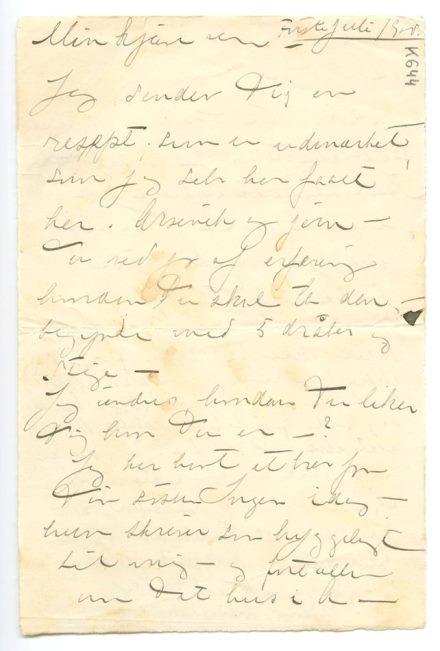 Første Juli 1908.
K644
Min kjære ven
Jeg sender Dig en
resept, som er udmærket
som jeg selv har faaet
her. Arsenik og jern –
Du ved jo af erfaring
hvordan Du skal ta den, –
begynde med 5 dråber og
stige –
Jeg undres hvordan Du liker
Dig hvor Du er – ?
Jeg har havt et brev fra
Din søster Inger idag –
hun skriver som hyggeligt
til mig – og fortæller
om Dit hus i